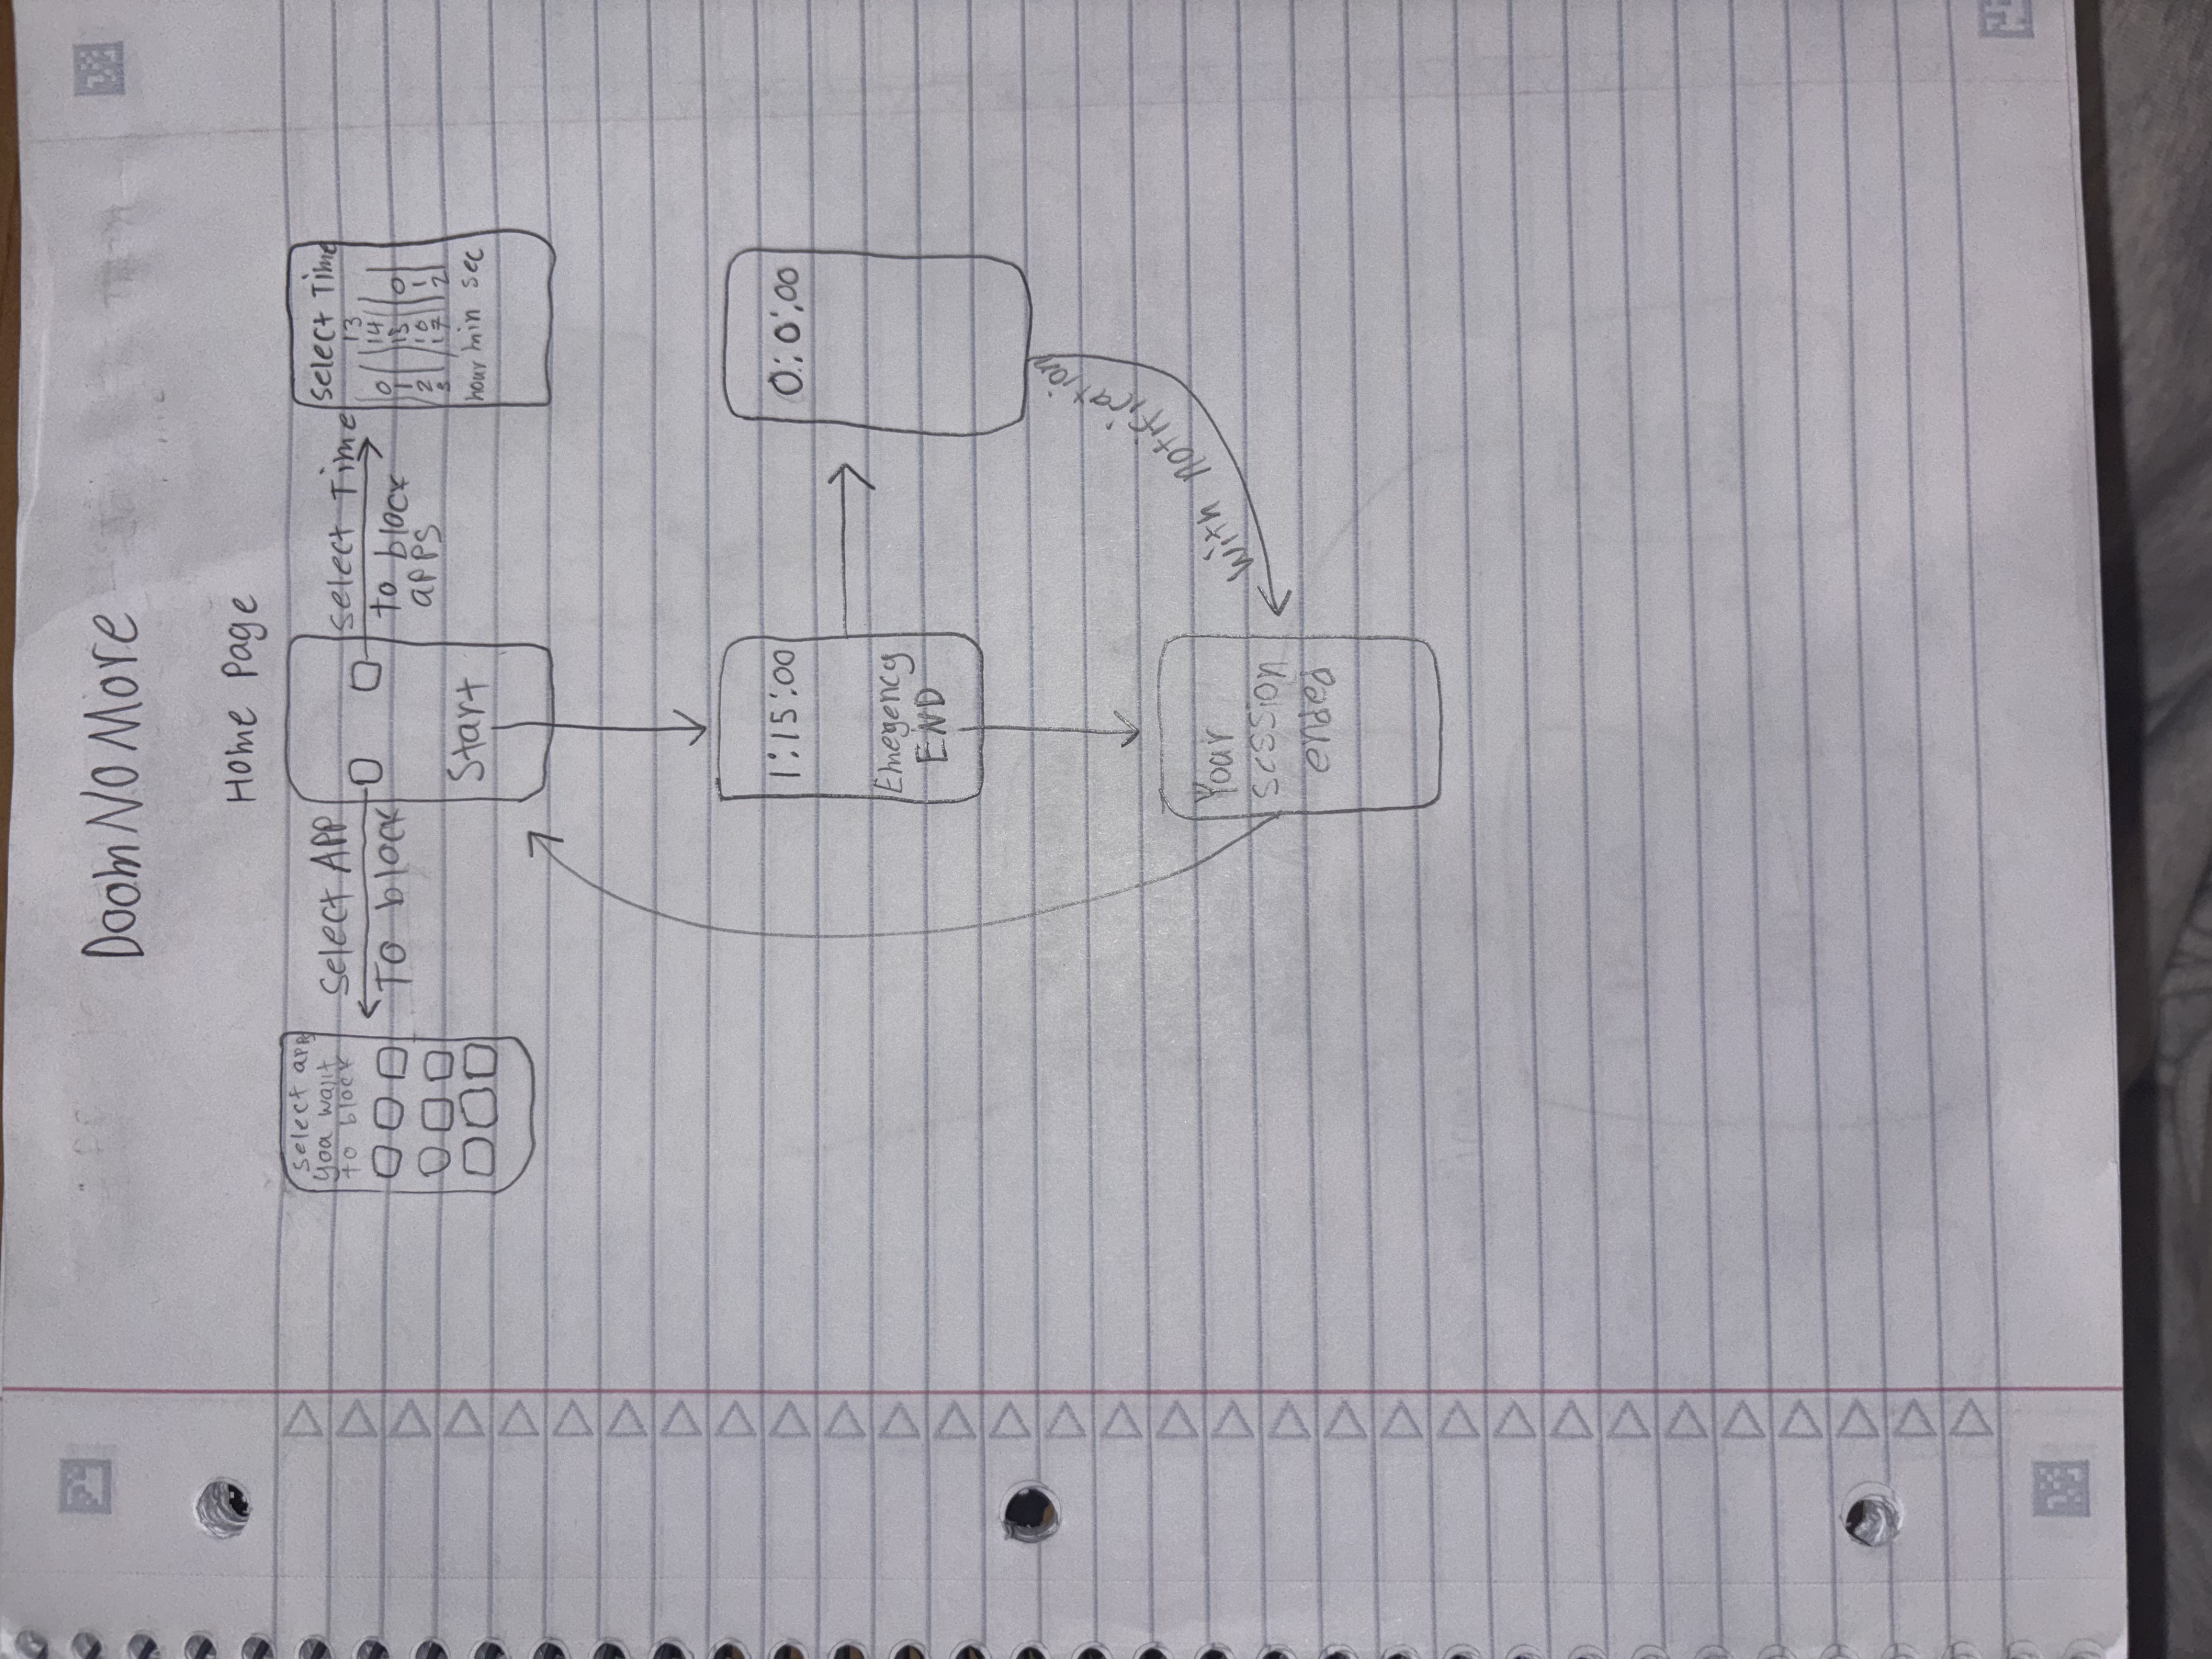 DoomNoMore
Home Page
select apps
you want
to block
Select APP
To block
Start
select Time
to block
apps
Select Time
13
0 14
1 15 0
2 16 1
3 17 2
hour min sec
1:15:00
Emegency
END
0:0:00
with notification
Your
session
ended